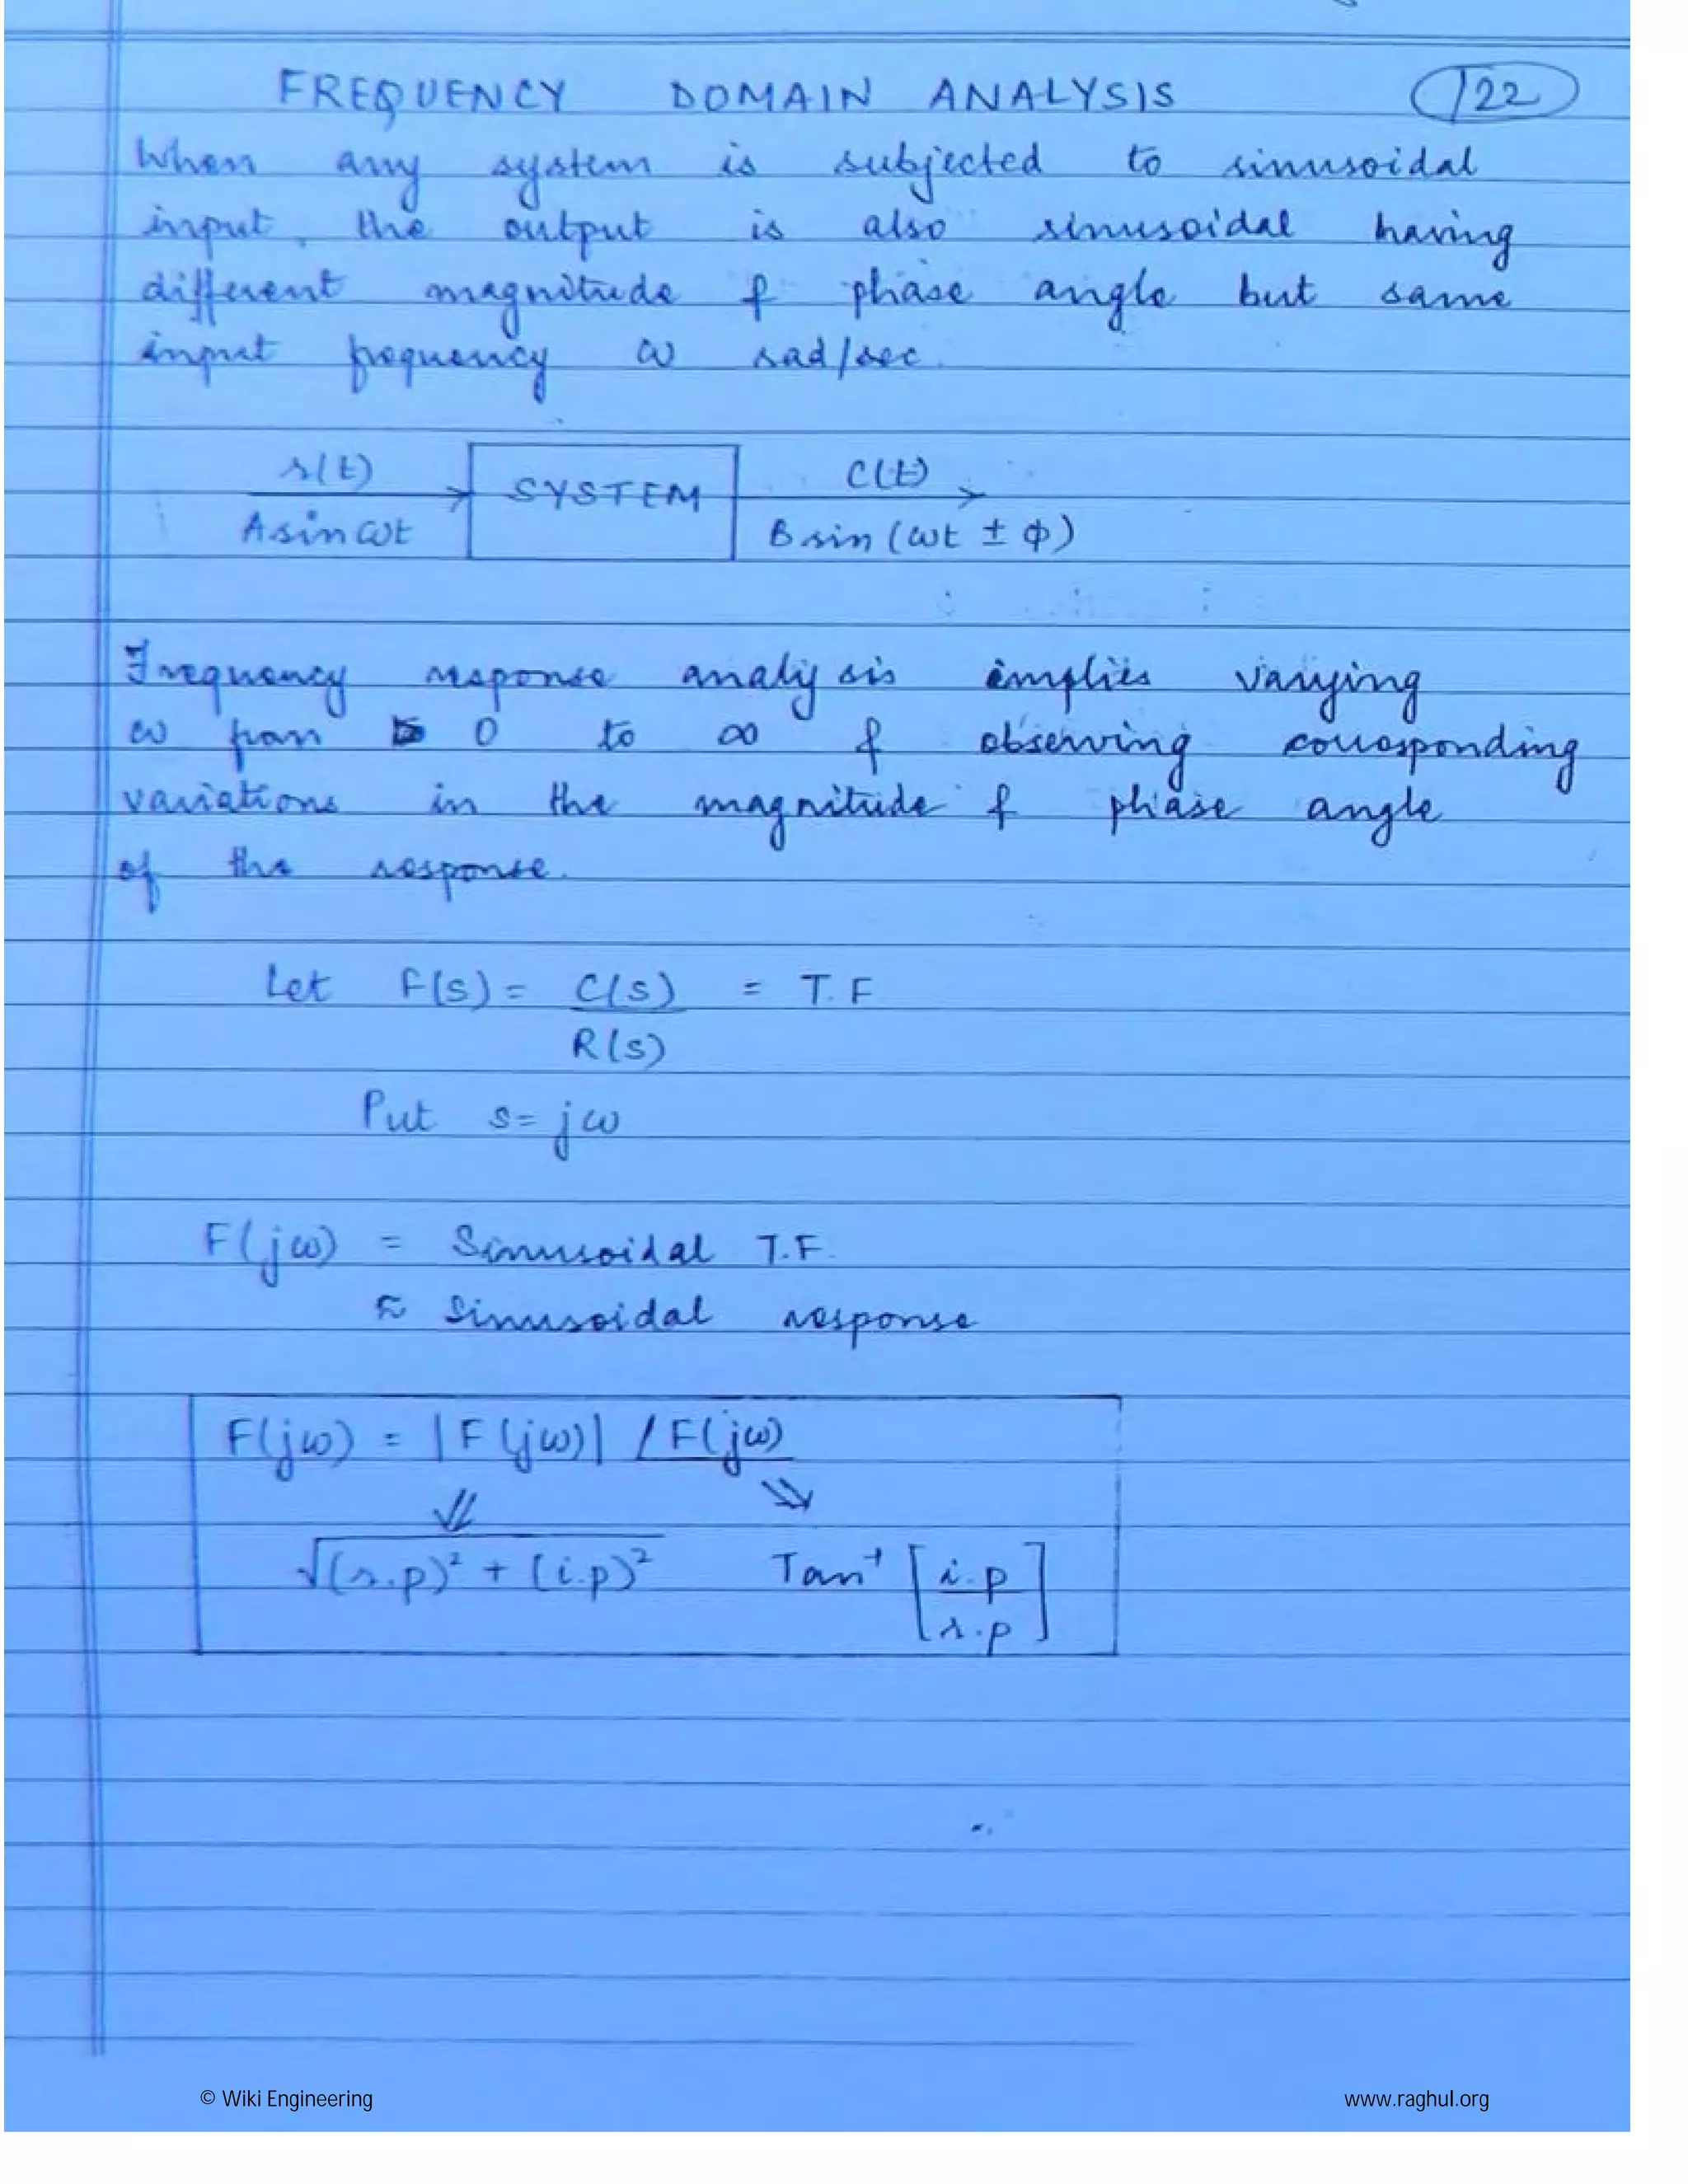 FREQUENCY DOMAIN ANALYSIS 122
When any system is subjected to sinusoidal
input, the output is also sinusoidal having
different magnitude & phase angle but same
input frequency ω rad/sec.
r(t) SYSTEM C(t)
A sin ωt B sin (ωt ± φ)
Frequency response analysis implies varying
ω from 0 to ∞ & observing corresponding
variations in the magnitude & phase angle
of the response.
Let F(s) = C(s) = T.F
R(s)
Put s = jω
F(jω) = Sinusoidal T.F.
≈ Sinusoidal response
F(jω) = |F(jω)| ∠F(jω)
⇓ ⇘
√(r.p)² + (i.p)² Tan⁻¹ [i.p
r.p]
© Wiki Engineering www.raghul.org